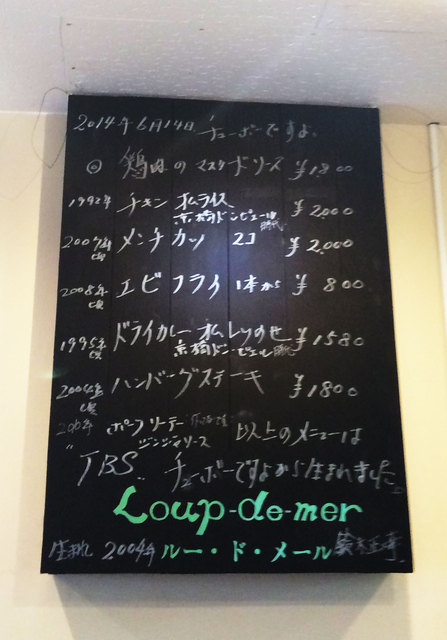 2014年6月14日 チューボーですよ。
◎ 鶏肉のマスタードソース ¥1800
1992年 チキンオムライス ¥2,000
京橋ドンピエール時代
2007年頃 メンチカツ 2コ ¥2,000
2008年頃 エビフライ 1本から ¥800
1995年頃 ドライカレーオムレツのせ ¥1580
京橋ドン・ピエール時代
2004年頃 ハンバーグステーキ ¥1800
ポークソテー
ジンジャソース 以上のメニューは
"TBS" チューボーですよから生まれました。
Loup-de-mer
生まれ 2004年 ルー・ド・メール